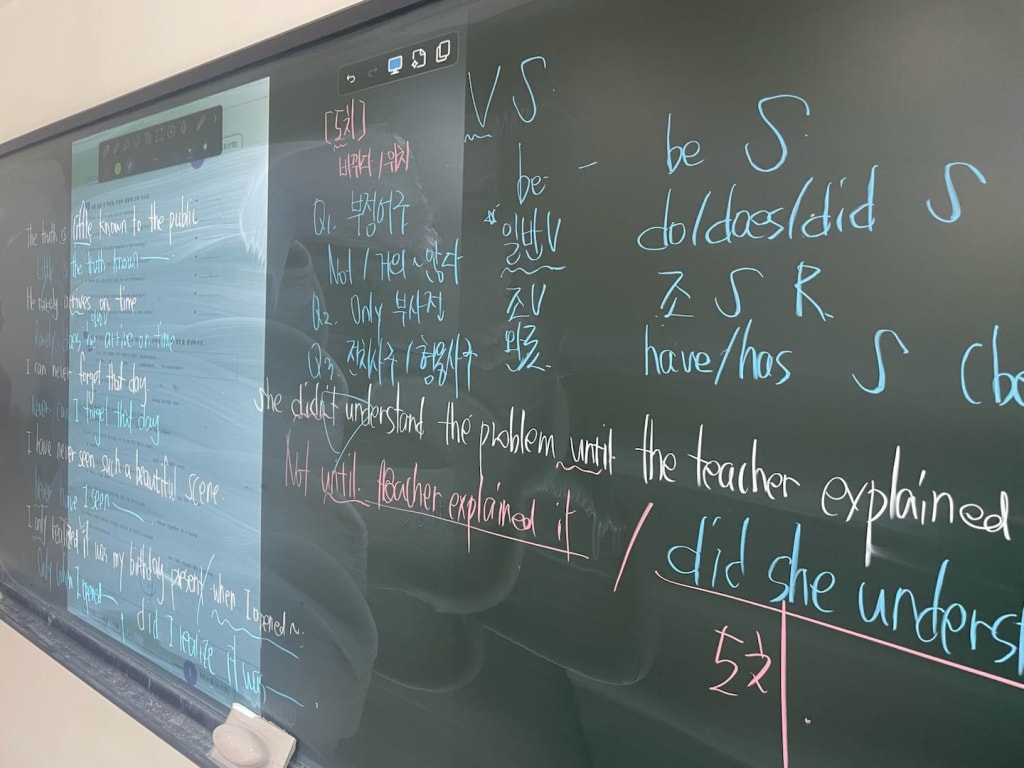 The truth is little known to the public
Little is the truth known
He rarely arrives on time
Rarely does he arrive on time
I can never forget that day
Never can I forget that day
I have never seen such a beautiful scene
Never have I seen
I only realized it was my birthday present / when I opened ~.
Only when I opened
did I realize it was
[도치]
바꾸다 / 위치
Q1. 부정어구
Not / 거의 ~않다
Q2. Only 부사절
Q3. 전치사구 / 형용사구
V S
be - be S
*일반V do/does/did S
조V 조 S R
완료 have/has S (be
She didn't understand the problem until the teacher explained
Not until teacher explained it / did she underst
도치